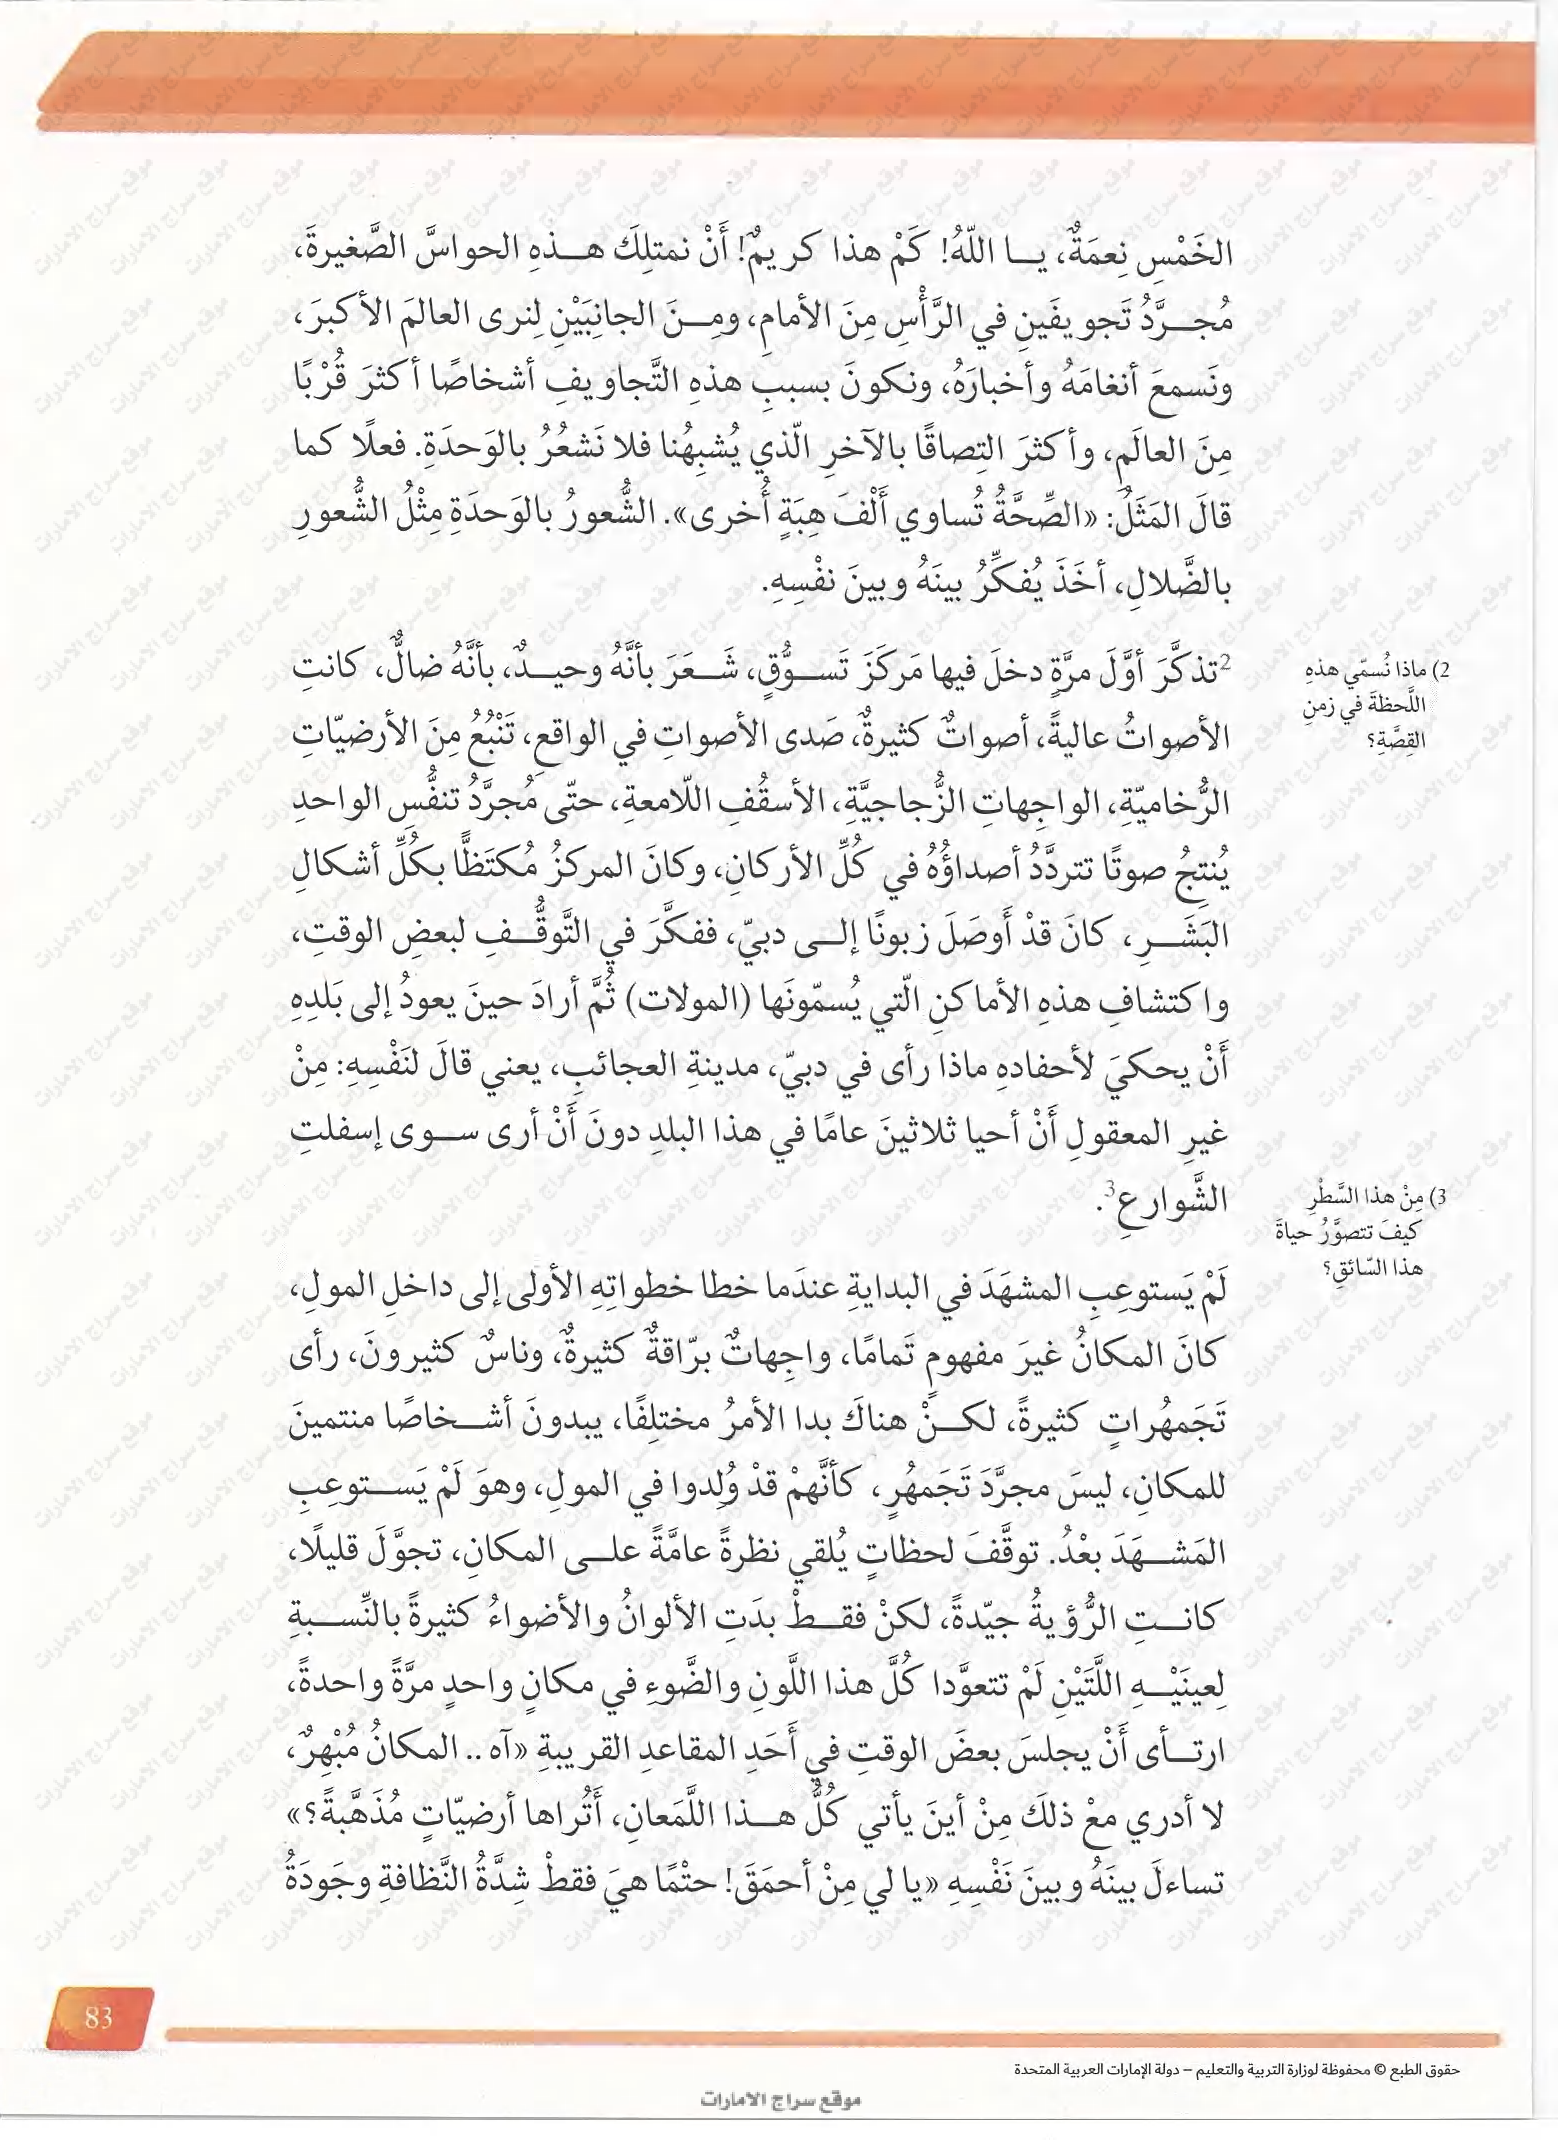 الخَمْسِ نِعمَةٌ، يا اللّهُ! كَمْ هذا كريمٌ! أَنْ نمتلِكَ هذهِ الحواسَّ الصَّغيرةَ،
مُجرَّدُ تَجويفَينِ في الرَّأْسِ مِنَ الأمامِ، ومِنَ الجانِبَيْنِ لِنرى العالمَ الأكبرَ،
ونَسمعَ أنغامَهُ وأخبارَهُ، ونكونَ بسببِ هذهِ التَّجاويفِ أشخاصًا أكثرَ قُرْبًا
مِنَ العالَمِ، وأكثرَ التِصاقًا بالآخرِ الّذي يُشبِهُنا فلا نَشعُرُ بالوَحدَةِ. فعلًا كما
قالَ المَثَلُ: «الصِّحَّةُ تُساوي أَلْفَ هِبَةٍ أُخرى». الشُّعورُ بالوَحدَةِ مِثْلُ الشُّعورِ
بالضَّلالِ، أخَذَ يُفكِّرُ بينَهُ وبينَ نفْسِهِ.
2تذكَّرَ أوَّلَ مرَّةٍ دخلَ فيها مَركَزَ تَسوُّقٍ، شَعَرَ بأنَّهُ وحيدٌ، بأنَّهُ ضالٌّ، كانتِ
الأصواتُ عاليةً، أصواتٌ كثيرةٌ، صَدى الأصواتِ في الواقعِ، تَنْبُعُ مِنَ الأرضيّاتِ
الرُّخاميّةِ، الواجِهاتِ الزُّجاجيَّةِ، الأسقُفِ اللّامعةِ، حتّى مُجرَّدُ تنفُّسِ الواحدِ
يُنتِجُ صوتًا تتردَّدُ أصداؤُهُ في كُلِّ الأركانِ، وكانَ المركزُ مُكتَظًّا بكُلِّ أشكالِ
البَشَرِ، كانَ قدْ أَوصَلَ زبونًا إلى دبيّ، ففكَّرَ في التَّوقُّفِ لبعضِ الوقتِ،
واكتشافِ هذهِ الأماكنِ الّتي يُسمّونَها (المولات) ثُمَّ أرادَ حينَ يعودُ إلى بَلدِهِ
أَنْ يحكيَ لأحفادهِ ماذا رأى في دبيّ، مدينةِ العجائبِ، يعني قالَ لنَفْسِهِ: مِنْ
غيرِ المعقولِ أَنْ أحيا ثلاثينَ عامًا في هذا البلدِ دونَ أَنْ أرى سوى إسفلتِ
الشَّوارعِ3.
2) ماذا نُسمّي هذهِ
اللَّحظةَ في زمنِ
القِصَّةِ؟
3) مِنْ هذا السَّطْرِ
كيفَ تتصوَّرُ حياةَ
هذا السّائقِ؟
لَمْ يَستوعِبِ المشهَدَ في البدايةِ عندَما خطا خطواتِهِ الأولى إلى داخلِ المولِ،
كانَ المكانُ غيرَ مفهومٍ تَمامًا، واجِهاتٌ برّاقةٌ كثيرةٌ، وناسٌ كثيرونَ، رأى
تَجَمهُراتٍ كثيرةً، لكنْ هناكَ بدا الأمرُ مختلِفًا، يبدونَ أشخاصًا منتمينَ
للمكانِ، ليسَ مجرَّدَ تَجَمهُرٍ، كأنَّهمْ قدْ وُلِدوا في المولِ، وهوَ لَمْ يَستوعِبِ
المَشهَدَ بعْدُ. توقَّفَ لحظاتٍ يُلقي نظرةً عامَّةً على المكانِ، تجوَّلَ قليلًا،
كانتِ الرُّؤيةُ جيّدةً، لكنْ فقطْ بدَتِ الألوانُ والأضواءُ كثيرةً بالنِّسبةِ
لِعينَيْهِ اللَّتَيْنِ لَمْ تتعوَّدا كُلَّ هذا اللَّونِ والضَّوءِ في مكانٍ واحدٍ مرَّةً واحدةً،
ارتأى أَنْ يجلسَ بعضَ الوقتِ في أَحَدِ المقاعدِ القريبةِ «آه .. المكانُ مُبْهِرٌ،
لا أدري معْ ذلكَ مِنْ أينَ يأتي كُلُّ هذا اللَّمَعانِ، أَتُراها أرضيّاتٍ مُذَهَّبةً؟»
تساءلَ بينَهُ وبينَ نَفْسِهِ «يا لي مِنْ أحمَقَ! حتْمًا هيَ فقطْ شِدَّةُ النَّظافةِ وجَودَةُ
83
حقوق الطبع © محفوظة لوزارة التربية والتعليم – دولة الإمارات العربية المتحدة
موقع سراج الامارات